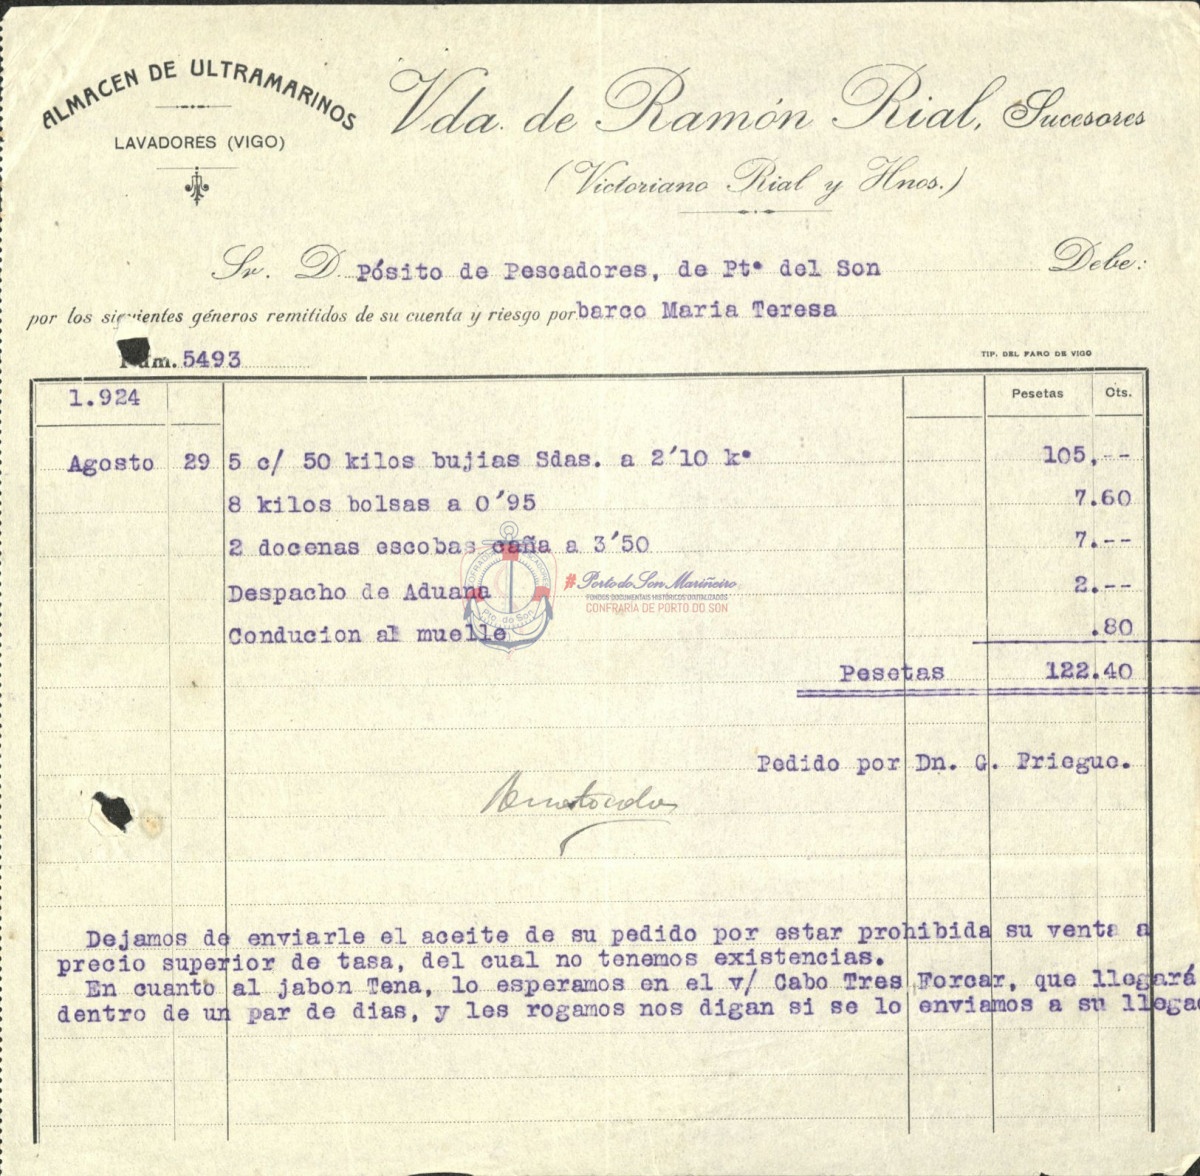 ALMACEN DE ULTRAMARINOS
LAVADORES (VIGO)
Vda. de Ramón Rial, Sucesores
(Victoriano Rial y Hnos.)
Sr. D. Pósito de Pescadores, de Ptº del Son Debe:
por los siguientes géneros remitidos de su cuenta y riesgo por barco Maria Teresa
Núm. 5493
TIP. DEL FARO DE VIGO
1.924 Pesetas Cts.
Agosto 29 5 c/ 50 kilos bujias Sdas. a 2'10 kº 105,--
8 kilos bolsas a 0'95 7.60
2 docenas escobas caña a 3'50 7.--
Despacho de Aduana 2.--
Conducion al muelle .80
Pesetas 122.40
COFRADIA PESCADORES
Pto. do Son
#Porto do Son Mariñeiro
FONDOS DOCUMENTAIS HISTÓRICOS DIXITALIZADOS
CONFRARÍA DE PORTO DO SON
Pedido por Dn. G. Priegue.
Dejamos de enviarle el aceite de su pedido por estar prohibida su venta a
precio superior de tasa, del cual no tenemos existencias.
En cuanto al jabon Tena, lo esperamos en el v/ Cabo Tres Forcar, que llegará
dentro de un par de dias, y les rogamos nos digan si se lo enviamos a su llegad